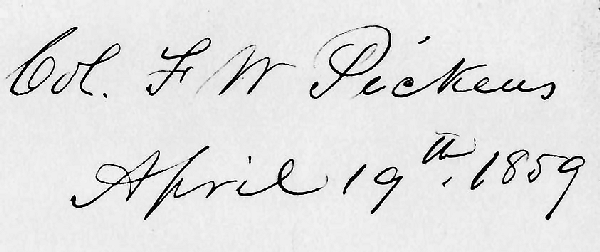 Col. F W Pickens
April 19th, 1859